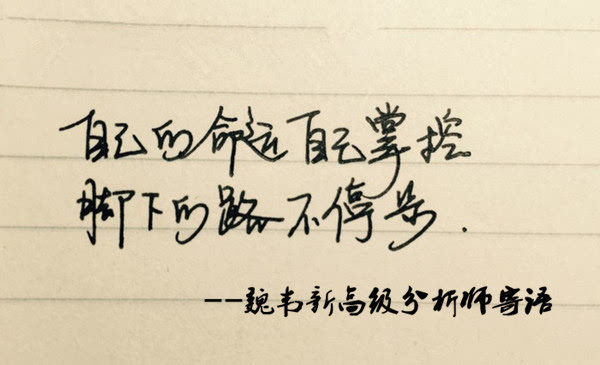 自己的命运自己掌控
脚下的路不停步.
--魏韦新高级分析师寄语